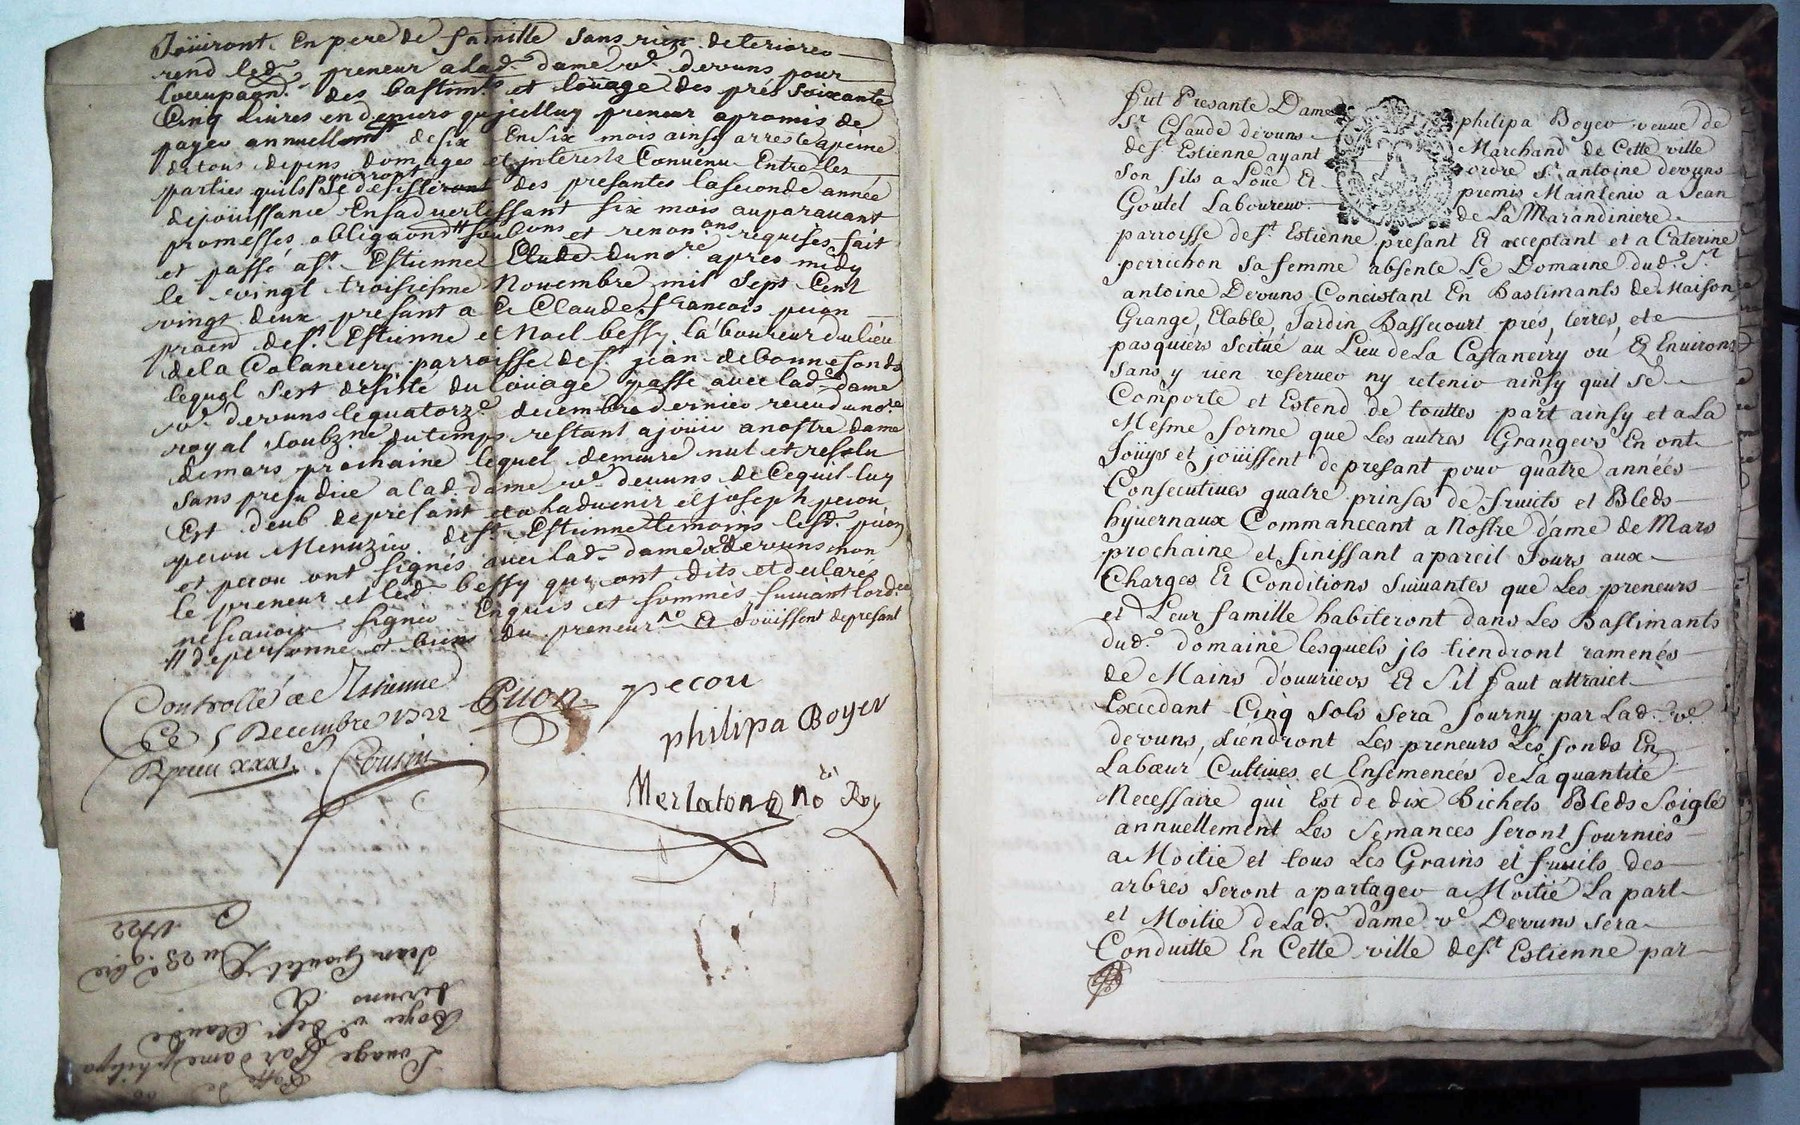 Joüiront En pere de famille sans rien deteriorer
rend led. preneur a lad. dame ve. devuns pour
loccupaõn. des bastimts et loüage des prés soixante
Cinq livres en deniers qu jcelluy preneur a promis de
payer annuellemt de six En six mois ainsy arreste a peine
de tous depens domages et interests Convenu Entre les
parties quils pourront se desister des presantes la seconde année
de joüissance En sadvertissant six mois auparavant
promesses obligaons et renonõns requises fait
et passé a st. Estienne Etude du nore. apres midy
le vingt troisiesme Novembre mil sept Cent
vingt deux presant a Ce Claude francois puion
praen de st. Estienne et Noel bessy laboureur du lieu
de la Calaneiery parroisse de st jean de bonnefonds
lequel sest desisté du loüage passé avec lad. dame
ve. devuns le quatorze decembre dernier receu du nore
royal soubzne. du temps restant a jouir a nostre dame
de mars prochaine lequel demeure nul et resolu
sans prejudice a lad. dame ve. devuns de Ce quil luy
Est deub de presant et a ladvenir et joseph pecou
pecou Menuzier de st. Estienne temoins lesd. puion
et pecou ont signés avec lad. dame devuns non
le preneur et led. bessy qui ont dits et declarés
ne scavoir signer Enquis et sommés suivant lordce
# de personne et biens du preneur Et Joüissent de presant
Controllé a st Estienne
Ce 5 Decembre 1722
Receu xxx s. Cousin
Puion
pecou
philipa Boyer
Merlaton no. Roy
Louage Par dame philipa
Boyer ve. de sr. Claude
devuns A
Jean Goutel Du 23 9bre
1722
fut Presante Dame philipa Boyer veuve de
Sr Claude devuns Marchand de Cette ville
de st Estienne ayant ordre sr. antoine devuns
Son fils a Loüé Et premis Maintenir a Jean
Goutel Laboureur de La Marandiniere
parroisse de st Estienne presant Et acceptant et a Caterine
perrichon sa femme absente Le Domaine dud. Sr
antoine Devuns Concistant En Bastimants de Maison
Grange, Etable, Jardin Bassecourt prés, terres, et
pasquiers Scitué au Lieu de La Castaneiry ou Es Environs
Sans y rien reserver ny retenir ainsy quil se
Comporte et Estend de touttes part ainsy et a La
Mesme forme que Les autres Grangers En ont
Joüys et joüissent de presant pour quatre années
Consecutives quatre prinses de fruicts et Bleds
hyvernaux Commanceant a Nostre dame de Mars
prochaine et finissant a pareil Jours aux
Charges Et Conditions suivantes que Les preneurs
et Leur famille habiteront dans Les Bastimants
dud. domaine lesquels jls tiendront ramenés
de Mains d'ouvriers Et Sil faut attraict
Excedant Cinq Sols sera fourny par Lad. ve.
devuns, tiendront Les preneurs Les fonds En
Labœur Cultivés et Ensemencés de La quantité
Necessaire qui Est de dix Bichets Bleds Soigles
annuellement Les Semances seront fournies
a Moitié et tous Les Grains et fruits des
arbres seront a partager a Moitié La part
et Moitié de Lad. dame ve. Devuns sera
Conduitte En Cette ville de st. Estienne par